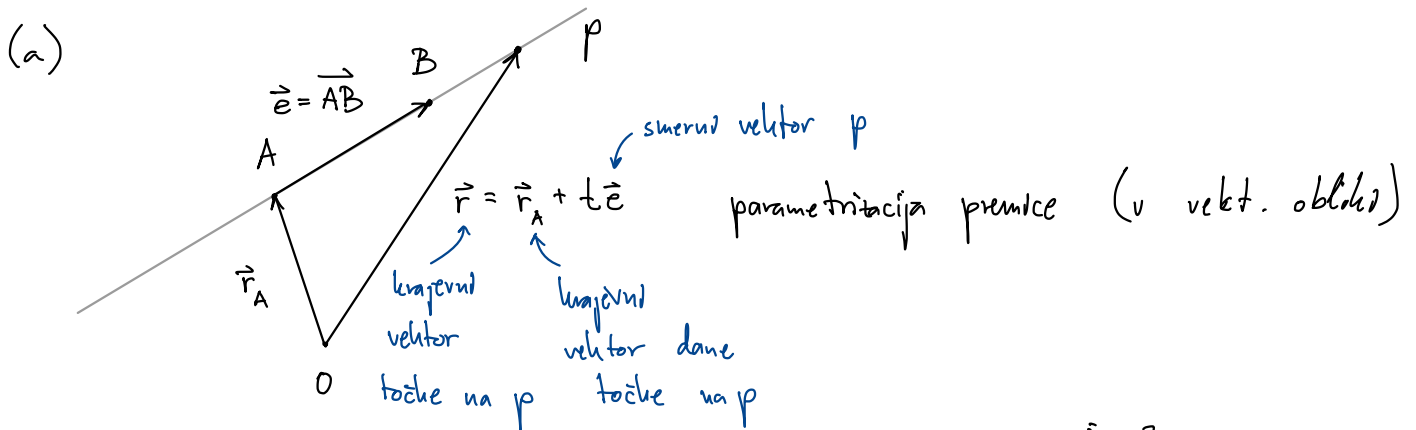 (a)
p
B
$\vec{e} = \overrightarrow{AB}$
A
smerni vektor p
$\vec{r} = \vec{r}_A + t\vec{e}$
parametrizacija premice (v vekt. obliki)
$\vec{r}_A$
krajevni
vektor
točke na p
krajevni
vektor dane
točke na p
O